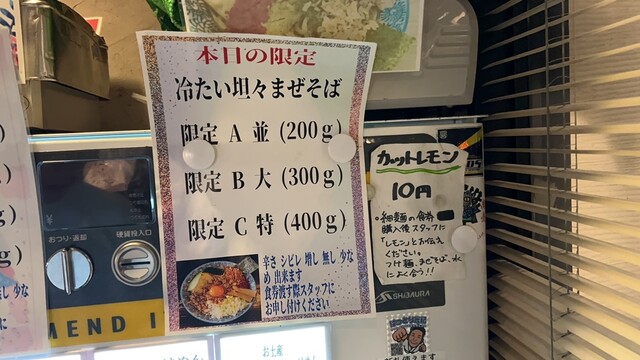 本日の限定
冷たい坦々まぜそば
限定 A 並 (200g)
限定 B 大 (300g)
限定 C 特 (400g)
辛さ シビレ 増し 無し 少な
め 出来ます
食券渡す際スタッフに
お申し付けください
カットレモン
10円
購入後スタッフに
「レモン」とお伝え
ください。
つけ麺、まぜそば、水
によく合う!!
SHIBAURA
おつり・返却
硬貨投入口
¥
MEND I
お土産